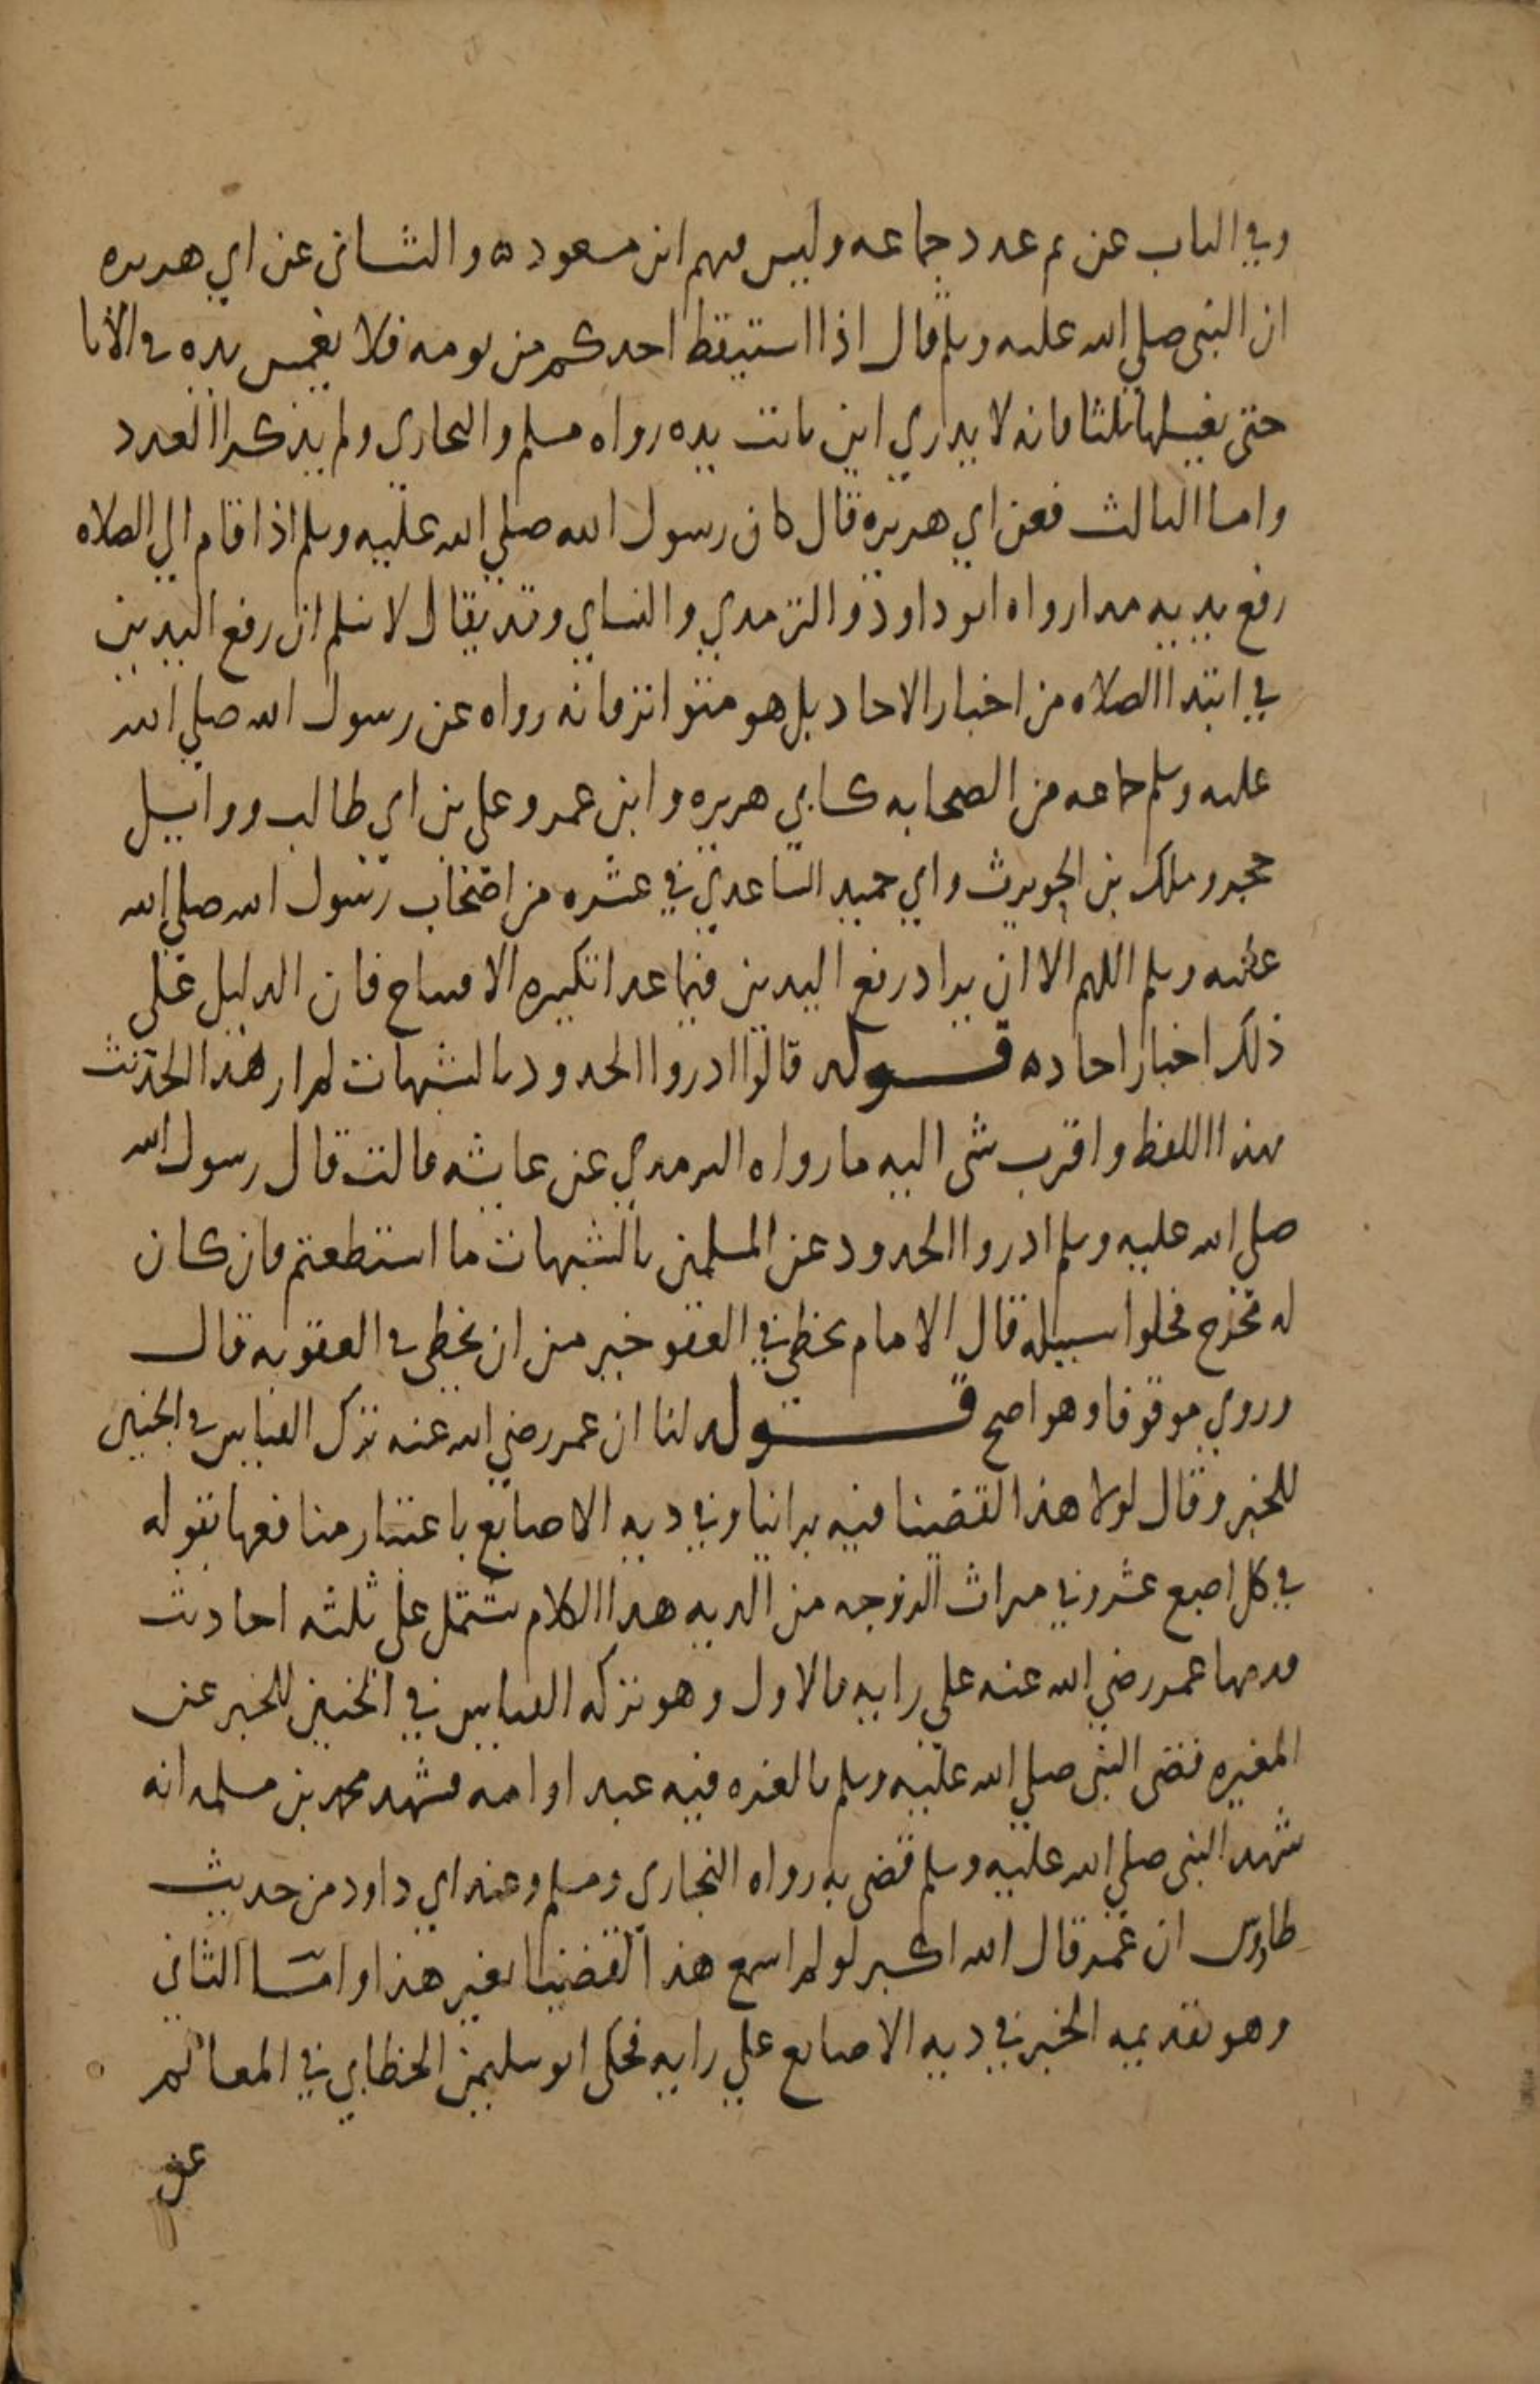 وفي الباب عن عدد جماعه وليس فيهم ابن مسعود ه والثاني عن ابي هريره
ان النبي صلي الله عليه وسلم قال اذا استيقظ احدكم من نومه فلا يغمس يده في الانا
حتى يغسلها ثلثا فانه لا يدري اين باتت يده رواه مسلم والبخاري ولم يذكر العدد
واما الثالث فعن ابي هريره قال كان رسول الله صلي الله عليه وسلم اذا قام الي الصلاه
رفع يديه مدا رواه ابو داود والترمدي والنساي وقد يقال لا نسلم ان رفع اليدين
في ابتدا الصلاه من اخبار الاحاد بل هو متواتر فانه رواه عن رسول الله صلي الله
عليه وسلم جماعه من الصحابه كابي هريره وابن عمر وعلي بن ابي طالب ووايل
حجر وملك بن الحويرث وابي حميد الساعدي في عشره من اصحاب رسول الله صلي الله
عليه وسلم اللهم الا ان يراد رفع اليدين فيما عدا تكبيره الافتتاح فان الدليل على
ذلك اخبار احاد ه قوله قالوا ادروا الحدود بالشبهات لم ار هذا الحديث
بهذا اللفظ واقرب شى اليه ما رواه الترمدي عن عايشه قالت قال رسول الله
صلي الله عليه وسلم ادروا الحدود عن المسلمين بالشبهات ما استطعتم فان كان
له مخرج فخلوا سبيله قال الامام يخطي في العفو خير من ان يخطي في العقوبه قال
وروي موقوفا وهو اصح قوله لنا ان عمر رضي الله عنه ترك القياس في الجنين
للخبر وقال لولا هذا لقضينا فيه براينا وفي ديه الاصابع باعتبار منافعها بقوله
في كل اصبع عشر وفي ميراث الزوجه من الديه هدا الكلام يشتمل على ثلثه احاديث
قدمها عمر رضي الله عنه علي رايه فالاول وهو تركه القياس في الجنين للخبر عن
المغيره قضى النبي صلي الله عليه وسلم بالغره فيه عبد او امه فشهد محمد بن مسلمه انه
شهد النبي صلي الله عليه وسلم قضى به رواه البخاري ومسلم وعند ابي داود من حديث
طاوس ان عمر قال الله اكبر لو لم اسمع هذا لقضينا بغير هذا واما الثاني
وهو تقديمه الخبر في ديه الاصابع علي رايه فحكى ابو سليمن الخطابي في المعالم
عن